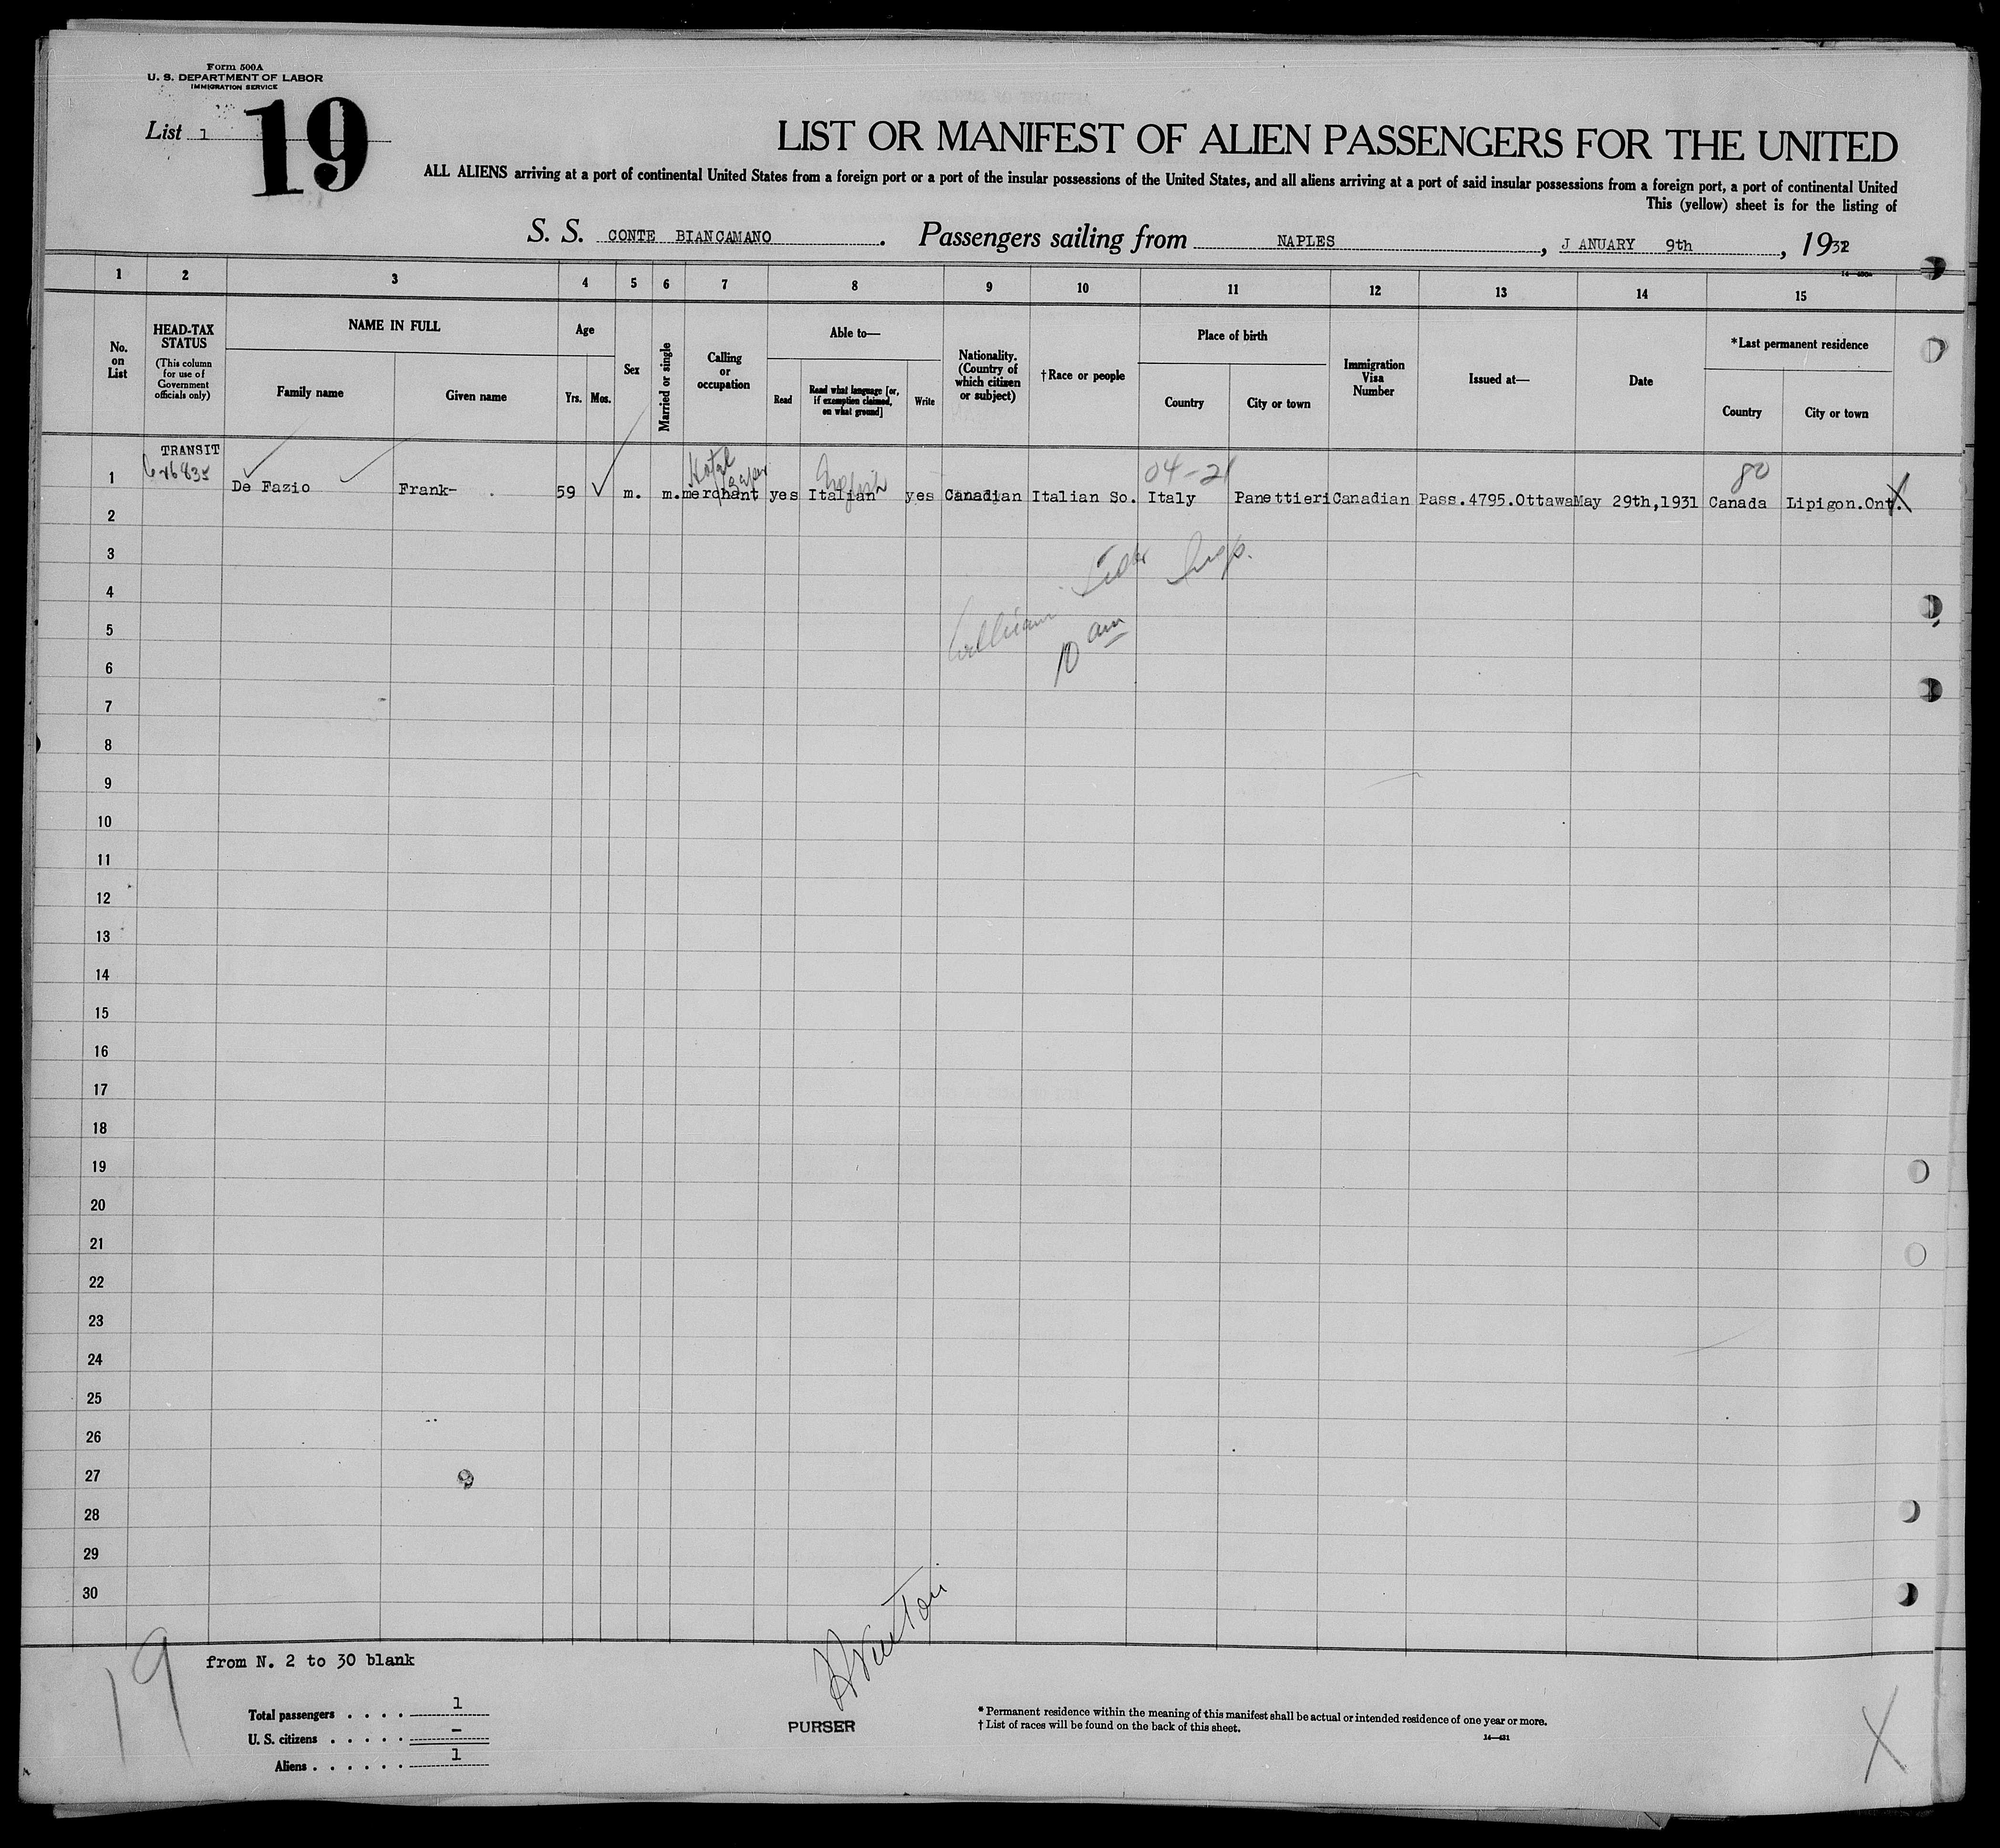 Form 500A
U. S. DEPARTMENT OF LABOR
IMMIGRATION SERVICE
List 1
19
LIST OR MANIFEST OF ALIEN PASSENGERS FOR THE UNITED
ALL ALIENS arriving at a port of continental United States from a foreign port or a port of the insular possessions of the United States, and all aliens arriving at a port of said insular possessions from a foreign port, a port of continental United
This (yellow) sheet is for the listing of
S. S. CONTE BIANCAMANO . Passengers sailing from NAPLES , J ANUARY 9th , 1932
1 2 3 4 5 6 7 8 9 10 11 12 13 14 15
No. on List
HEAD-TAX STATUS
(This column for use of Government officials only)
NAME IN FULL
Family name
Given name
Age
Yrs.
Mos.
Sex
Married or single
Calling or occupation
Able to—
Read
Read what language [or, if exemption claimed, on what ground]
Write
Nationality. (Country of which citizen or subject)
†Race or people
Place of birth
Country
City or town
Immigration Visa Number
Issued at—
Date
*Last permanent residence
Country
City or town
TRANSIT
Hotel English 04-21 80
1 De Fazio Frank- 59 m. m. merchant yes Italian yes Canadian Italian So. Italy Panettieri Canadian Pass.4795.Ottawa May 29th,1931 Canada Lipigon.Ont.
2
3
4
William
5
10 am
6
7
8
9
10
11
12
13
14
15
16
17
18
19
20
21
22
23
24
25
26
27
28
29
30
19
from N. 2 to 30 blank
Total passengers . . . . 1
U. S. citizens . . . . . –
Aliens . . . . . . 1
PURSER
* Permanent residence within the meaning of this manifest shall be actual or intended residence of one year or more.
† List of races will be found on the back of this sheet.
14—431
X